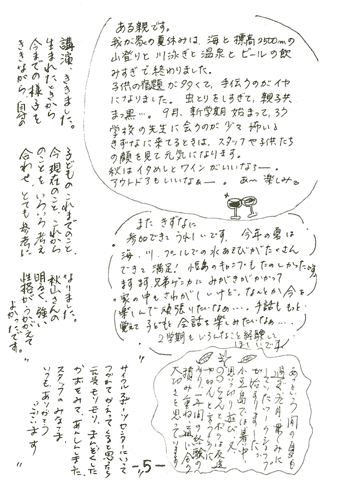 ある親です。
我が家の夏休みは、海と標高2500mの
山登りと川泳ぎと温泉とビールの飲
みすぎで終わりました。
子供の宿題が多くて、手伝うのがイヤ
になりました。虫とりをしすぎて、親子共
まっ黒…。9月、新学期始まって、もう
学校の先生に会うのが少々怖い
きずなに来てるときは、スタッフや子供たち
の顔を見て元気になります。
秋はイタめしとワインがいいなぁー。
アウトドアもいいなぁー。あ〜楽しみ。
また きずなに
参加できてうれしいです。今年の夏は
海・川・プールでの水あそびがたくさん
できて満足！小島のキャンプもたのしかった
ますます兄弟ゲンカにみがきがかかって
家の中もさわがしいけど、なんとか今を
楽しんで頑張りたいなぁ…手話ももっと
覚えて子どもと会話を楽しみたいなぁ…
2学期もいろんなこと経験して
ほしいです
講演、ききました。
生まれたときから
今までの様子を
ききながら、自分の
子どものこれまでのこと、
今現在のこと、これから
のことを、いろいろ考え
合わせ、とても参考に
なりました。
秋山さんの
明るく、強い
性格がうかがえて
よかったです。
サークルスポーツセンターにいって
つかれてかえってくると思ったら
元気モリモリ、まんぞくした
かおをみて、あんしんしました。
スタッフのみなさま、
いつもありがとう
ございます
あっという間の夏も
過ぎ
小豆島では暑い中
思いっきり遊び、
積み重ね
大切さを思っています
-5-